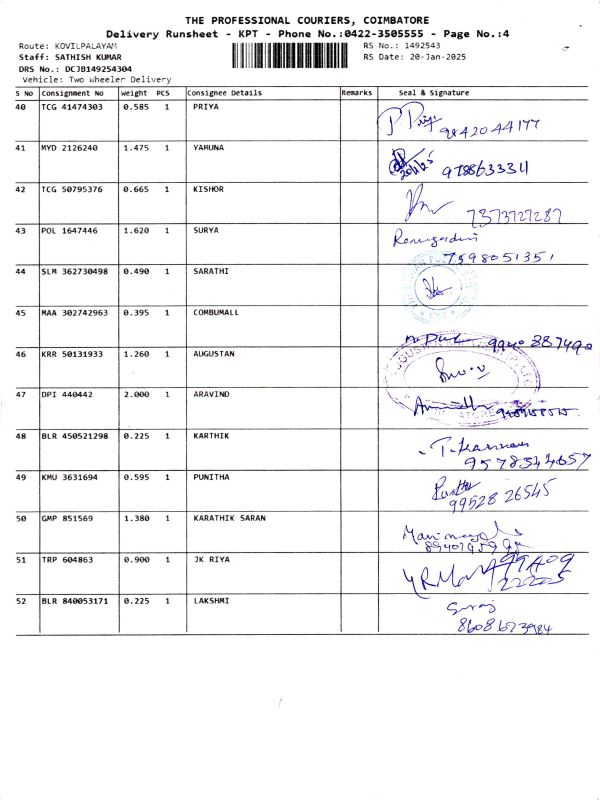 THE PROFESSIONAL COURIERS, COIMBATORE
Delivery Runsheet - KPT - Phone No.:0422-3505555 - Page No.:4
Route: KOVILPALAYAM RS No.: 1492543
Staff: SATHISH KUMAR RS Date: 20-Jan-2025
DRS No.: DCJB149254304
Vehicle: Two Wheeler Delivery
S No Consignment No Weight PCS Consignee Details Remarks Seal & Signature
40 TCG 41474303 0.585 1 PRIYA
9842044177
41 MYD 2126240 1.475 1 YAMUNA
20/1/25
42 TCG 50795376 0.665 1 KISHOR
7373727287
43 POL 1647446 1.620 1 SURYA
7598051351
44 SLM 362730498 0.490 1 SARATHI
45 MAA 302742963 0.395 1 COMBUMALL
46 KRR 50131933 1.260 1 AUGUSTAN
47 DPI 440442 2.000 1 ARAVIND
48 BLR 450521298 0.225 1 KARTHIK
49 KMU 3631694 0.595 1 PUNITHA
9952826545
50 GMP 851569 1.380 1 KARATHIK SARAN
51 TRP 604863 0.900 1 JK RIYA
52 BLR 840053171 0.225 1 LAKSHMI